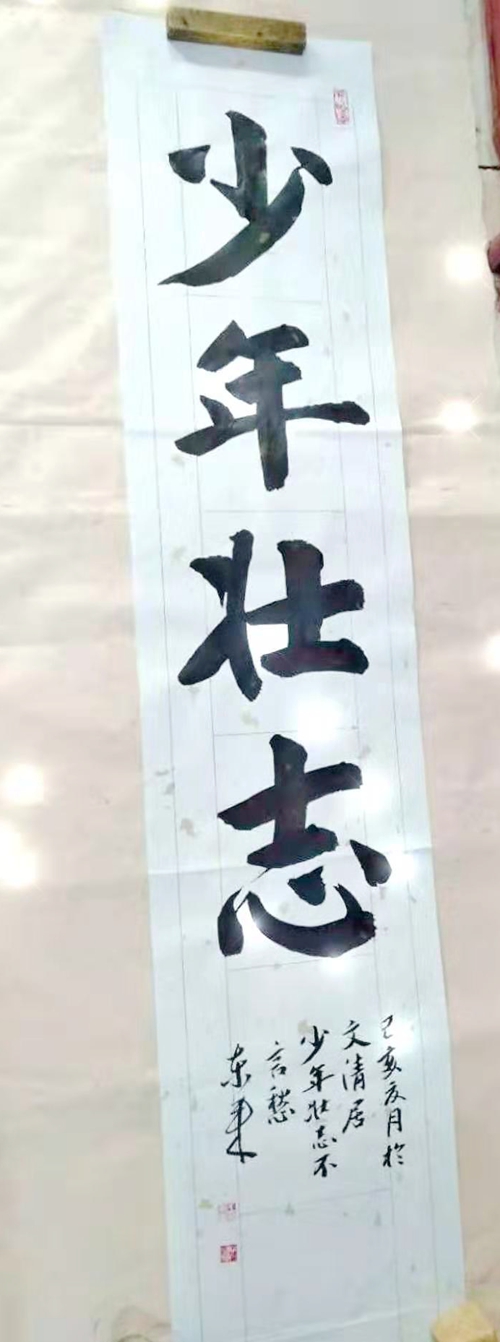 少年壮志
己亥夏月於
文清居
少年壮志不
言愁
东